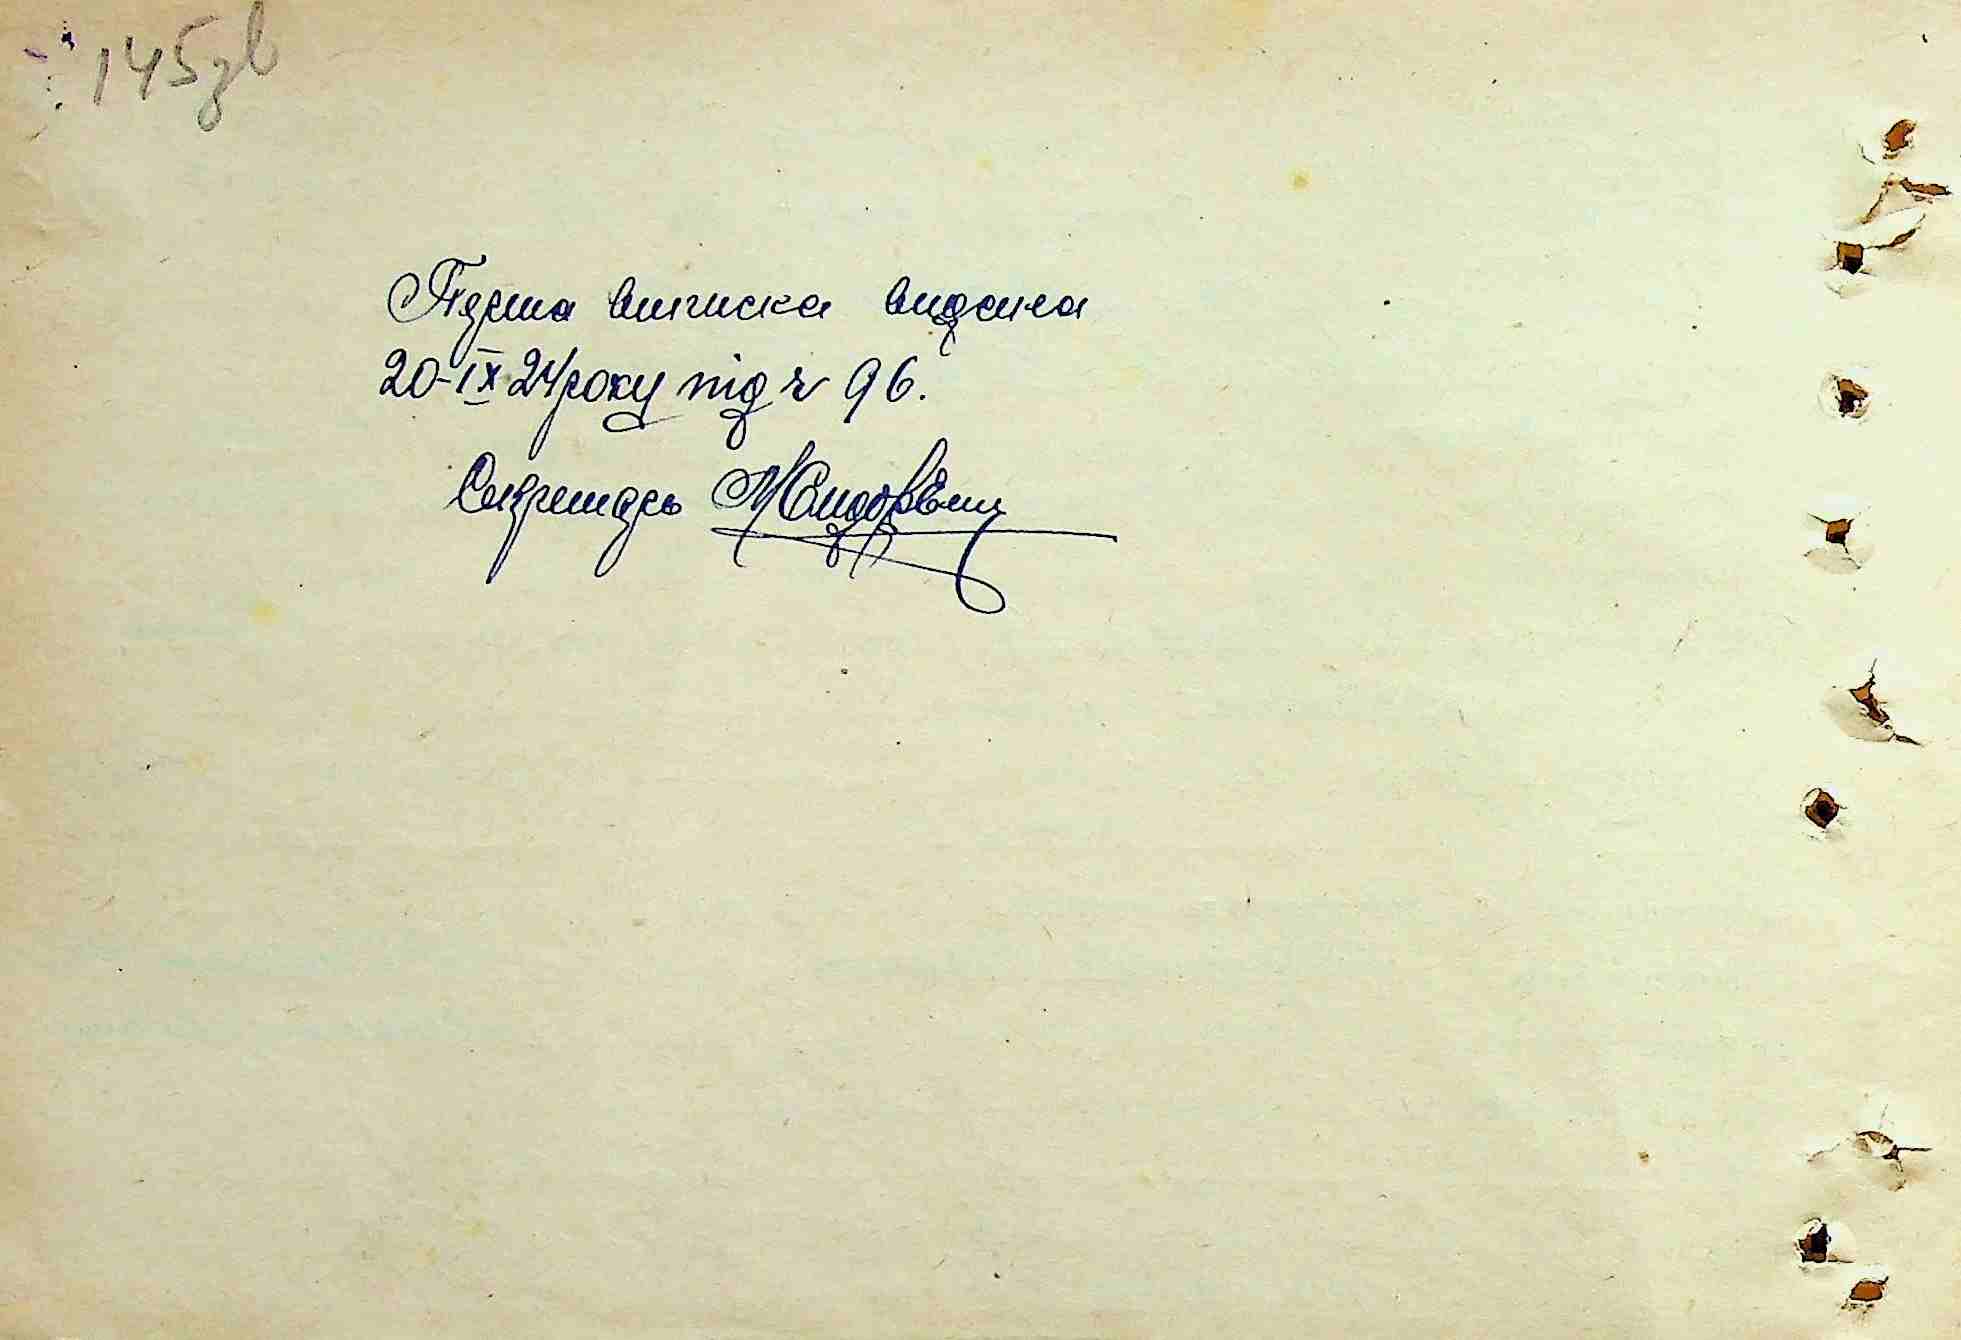 145зв
Перша виписка видана
20-IX 24 року під ч 96.
Секретарь